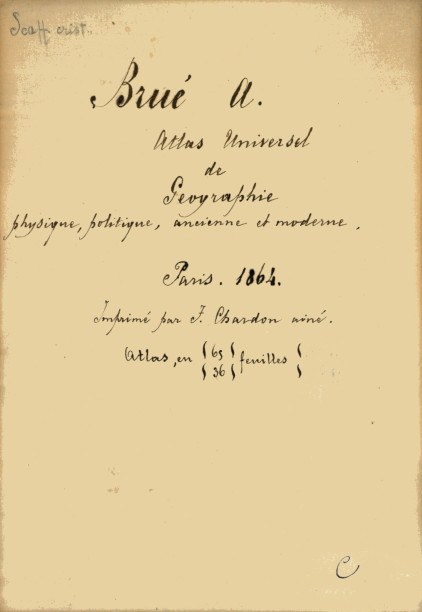 Scaff. crist.
Brué A.
Atlas Universel
de
Geographie
physique, politique, ancienne et moderne.
Paris. 1864.
Imprimé par F. Chardon ainé.
Atlas, en { 65 } feuilles }
{ 36 }
C